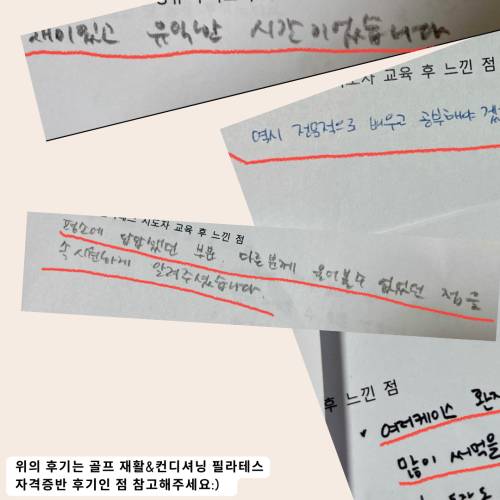 재미있고 유익한 시간이었습니다
지도자 교육 후 느낀 점
역시 전문적으로 배우고 공부해야
지도자 교육 후 느낀 점
평소에 답답했던 부분, 다른분께 물어볼수 없었던 점을
속 시원하게 알려주셨습니다.
후 느낀 점
여러케이스 환자
많이 써먹을
위의 후기는 골프 재활&컨디셔닝 필라테스
자격증반 후기인 점 참고해주세요:)